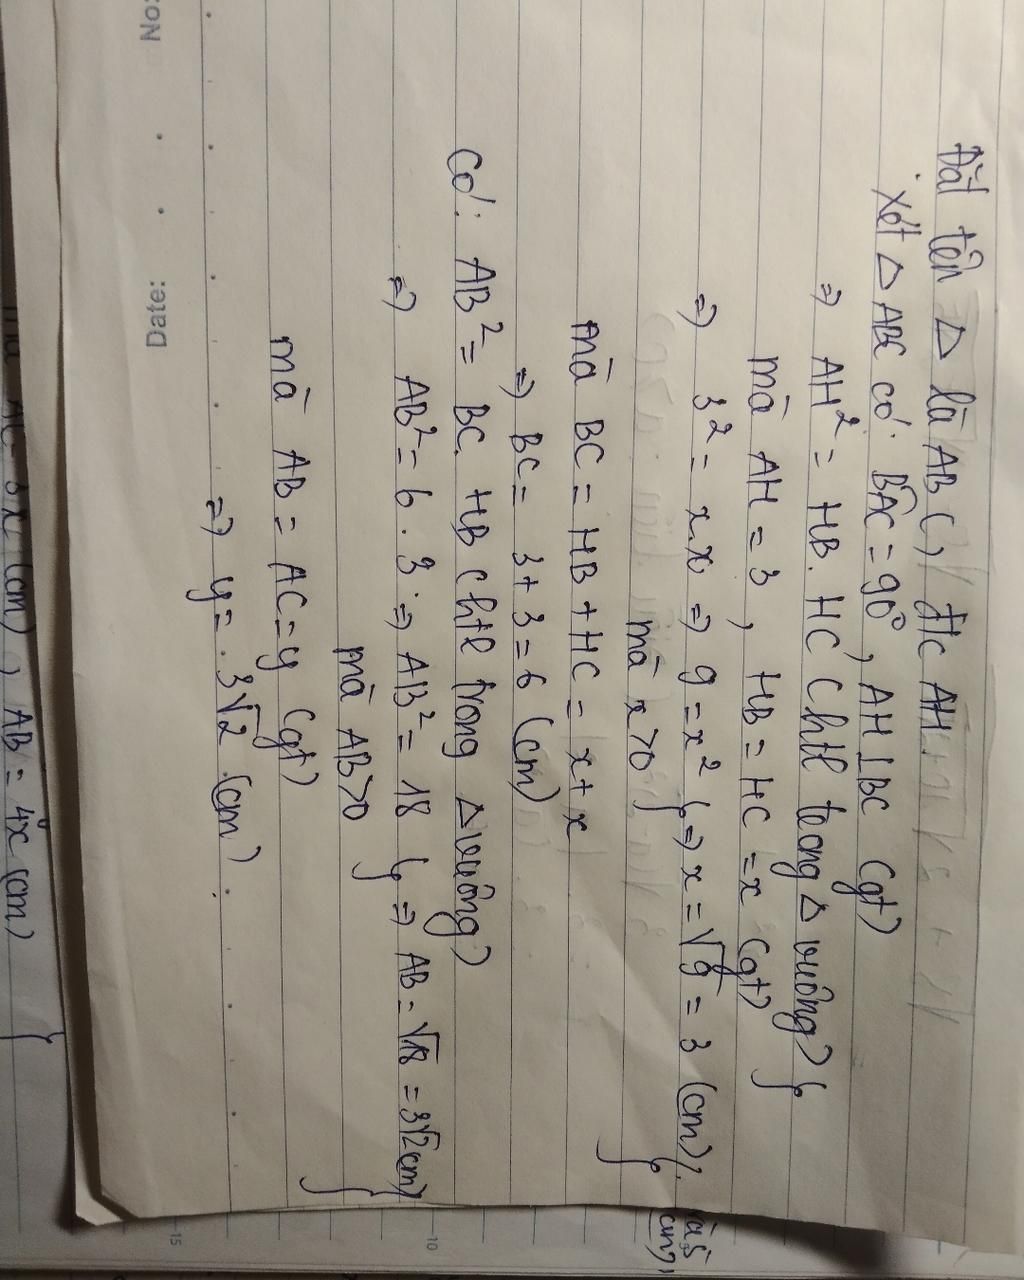 Đặt tên Δ là ABC, đ/c AH
Xét Δ ABC có: BAC = 90°, AH ⊥ BC (gt)
=> AH² = HB. HC (htl trong Δ vuông) }
mà AH = 3, HB = HC = x (gt)
=> 3² = x.x => 9 = x² } => x = √9 = 3 (cm)
mà x > 0
mà BC = HB + HC = x + x
=> BC = 3 + 3 = 6 (cm)
Có: AB² = BC. HB (htl trong Δ vuông)
=> AB² = 6 . 3 => AB² = 18 } => AB = √18 = 3√2 cm) }
mà AB > 0
mà AB = AC = y (gt)
=> y = 3√2 (cm)
No:
Date:
10
15
(cm), AB = 4x (cm) }